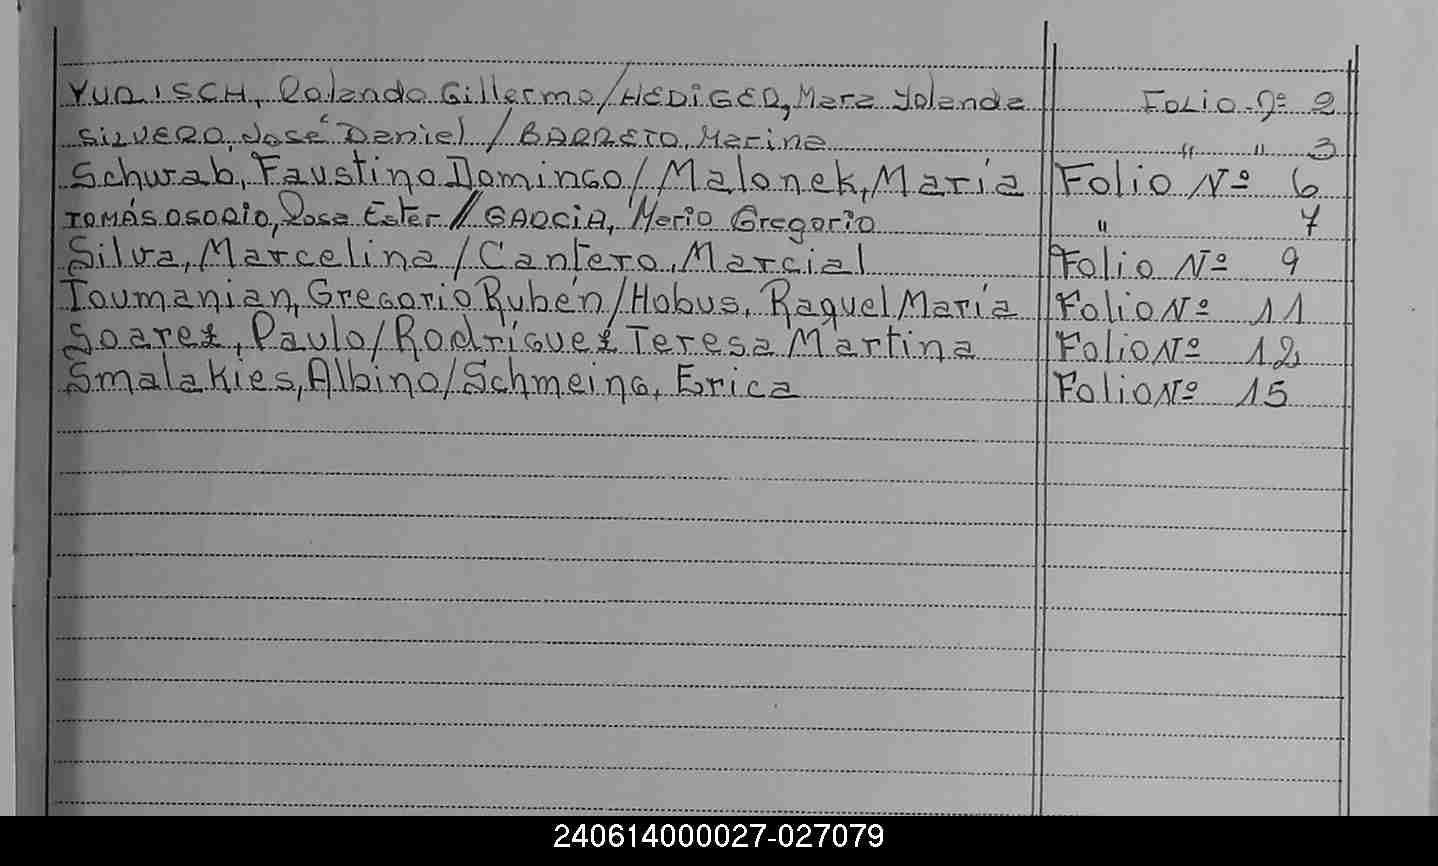 YURISCH, Rolando Gillermo/HEDIGER, Mara Yolanda Folio Nº 2
SILVERO, José Daniel / BARRETO, Marina " " 3
Schwab, Faustino Domingo/Malonek, María Folio Nº 6
TOMÁS OSORIO, Rosa Ester // GARCIA, Mario Gregorio " 7
Silva, Marcelina/Cantero, Marcial Folio Nº 9
Toumanian, Gregorio Rubén/Hobus, Raquel María Folio Nº 11
Soarez, Paulo/Rodríguez Teresa Martina Folio Nº 12
Smalakies, Albino/Schmeing, Erica Folio Nº 15
240614000027-027079